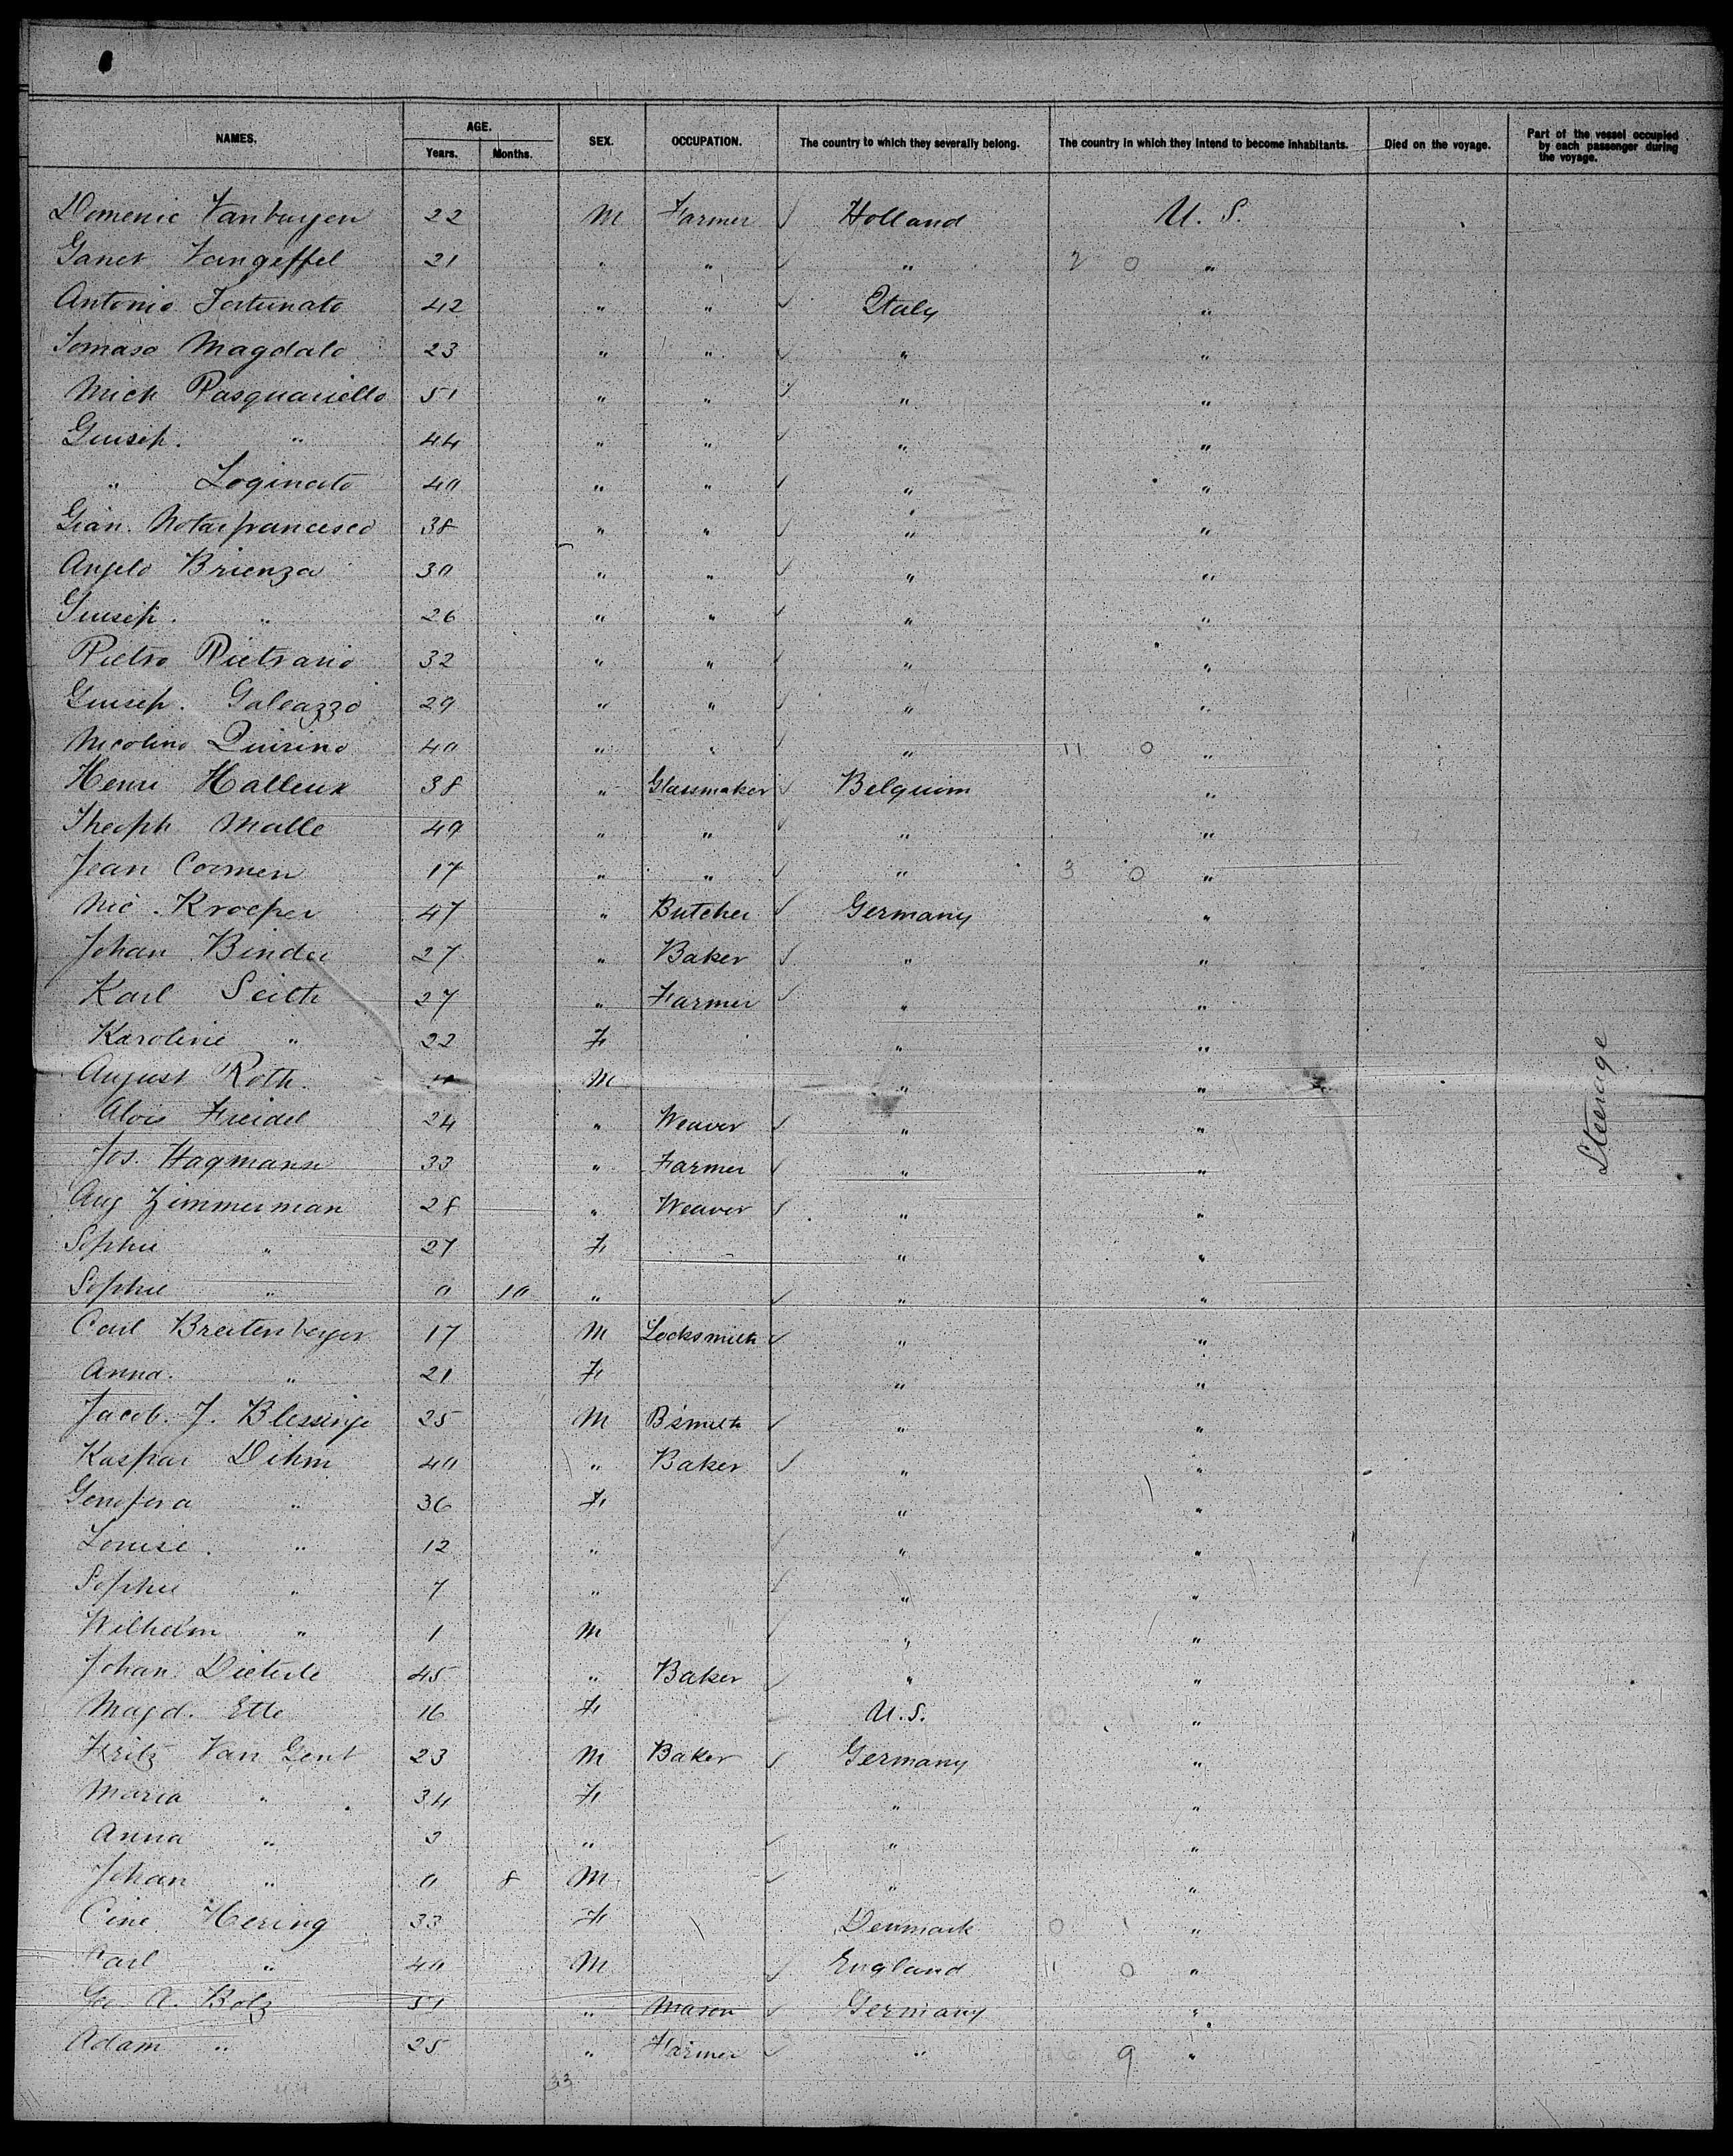 NAMES. AGE. SEX. OCCUPATION. The country to which they severally belong. The country in which they intend to become inhabitants. Died on the voyage. Part of the vessel occupied by each passenger during the voyage.
Years. Months.
Domenic Vanbuyen 22 M Farmer ✓ Holland U. S.
Ganet Vangeffel 21 " " ✓ " 2 0 "
Antonio Fortunato 42 " " ✓ Italy "
Tomaso Magdalo 23 " " ✓ " "
Mich Pasquariello 51 " " ✓ " "
Giusep. " 44 " " ✓ " "
" Loginato 40 " " ✓ " "
Gian. Notarfrancesco 38 " " ✓ " "
Angelo Brienza 30 " " ✓ " "
Giusep. " 26 " " ✓ " "
Pietro Pietranio 32 " " ✓ " "
Giusep. Galeazzo 29 " " ✓ " "
Nicolino Quirino 40 " " ✓ " 11 0 "
Henri Halleux 38 " Glassmaker ✓ Belguim "
Theoph Malle 49 " " ✓ " "
Jean Cormen 17 " " ✓ " 3 0 "
Nic. Kroeper 47 " Butcher ✓ Germany "
Johan Binder 27 " Baker ✓ " "
Karl Seith 27 " Farmer ✓ " "
Karoline " 22 F " "
August Roth. M " "
Alois Freidel 24 " Weaver ✓ " "
Jos. Hagmann 33 " Farmer ✓ " "
Aug Zimmerman 28 " Weaver ✓ " "
Sophie " 27 F " "
Sophie " 0 10 " ✓ " "
Carl Breitenberger 17 M Locksmith ✓ " "
Anna. " 21 F " "
Jacob. J. Blessinge 25 M B'smith ✓ " "
Kaspar Dihm 40 " Baker ✓ " "
Genofera " 36 F " "
Louise. " 12 " ✓ " "
Sophie " 7 " ✓ " "
Wilhelm " 1 M ✓ " "
Johan Dieterle 45 " Baker ✓ " "
Magd. Etle 16 F U.S. 0 "
Fritz Van Gent 23 M Baker ✓ Germany "
Maria " 34 F " "
Anna " 3 " ✓ " "
Johan " 0 8 M ✓ " "
Cine Hering 33 F Denmark 0 "
Carl " 40 M ✓ England 11 0 "
Geo A. Bolz 51 " Mason ✓ Germany "
Adam " 25 " Farmer ✓ " 9 "
33
Steerage